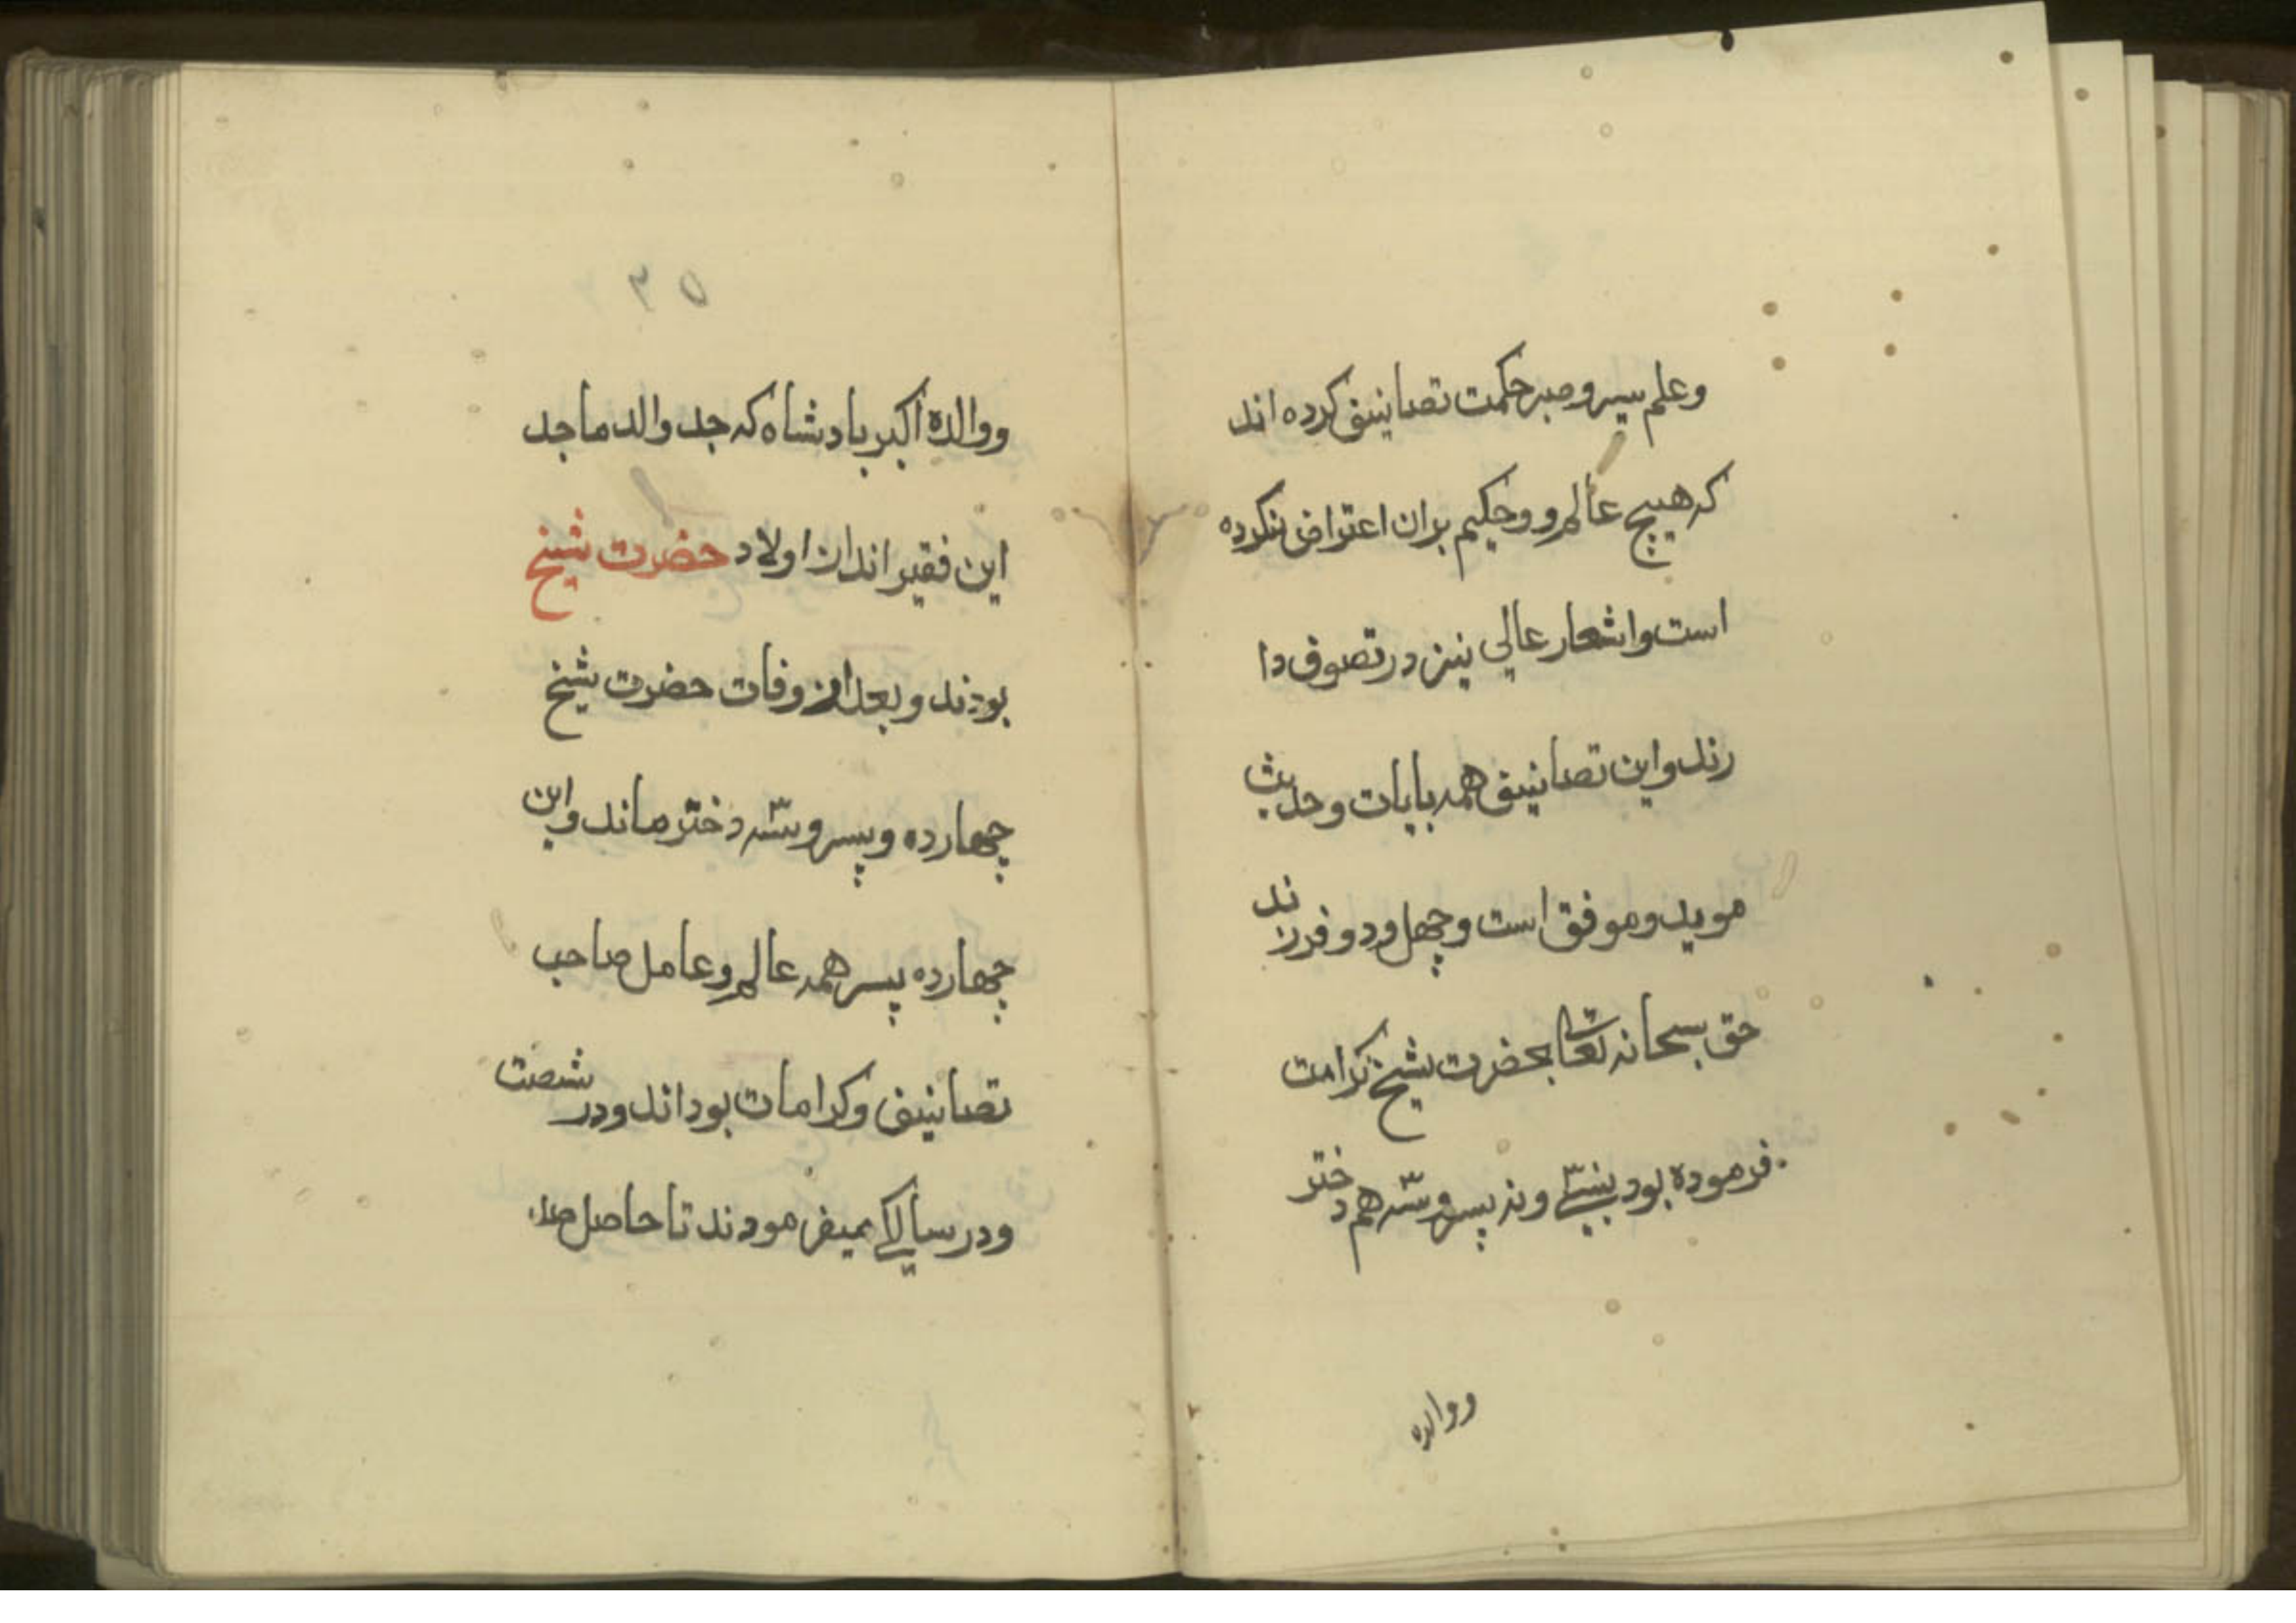 وعلم سیر و صبر حکمت تصانیف کرده اند
که هیچ عالم و وحکیم بران اعتراض نکرده
است واشعار عالی نیز در تصوف دا
رند واین تصانیف همه بایات وحدیث
موید وموفق است وچهل ودو فرزند
حق سبحانه تعالی بحضرت شیخ کرامت
فرموده بود بیستی ونه پسر وسه هم دختر
ووالده
۳۵
ووالده اکبر بادشاه که جد والد ماجد
این فقیر اند ازن اولاد حضرت شیخ
بودند وبعد از وفات حضرت شیخ
چهارده وپسر وسه دختر ماند واین
چهارده پسر همه عالم وعامل صاحب
تصانیف وکرامات بود اند ودر شصت
ودر سالگی میفرمودند تا حاصل